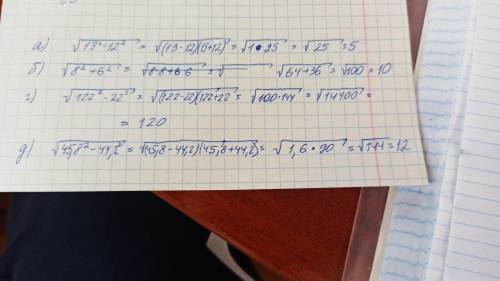 а) √13²-12² = √(13-12)(13+12) = √1•25 = √25 = 5
б) √8²+6² = √8·8+6·6 = √ √64+36 = √100 = 10
г) √122²-22² = √(122-22)(122+22 = √100·144 = √14400 =
= 120
д) √45,8²-44,2² = √(45,8-44,2)(45,8+44,2) = √1,6•90 = √144 = 12